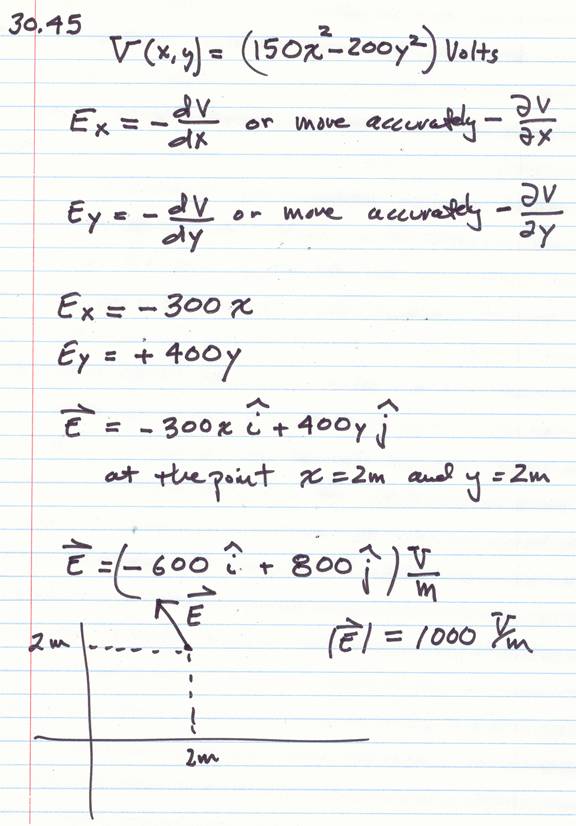 30.45
V(x,y) = (150x² - 200y²) Volts
Ex = - dV/dx or more accurately - ∂V/∂x
Ey = - dV/dy or more accurately - ∂V/∂y
Ex = - 300 x
Ey = + 400y
E⃗ = - 300x î + 400y ĵ
at the point x = 2m and y = 2m
E⃗ = (- 600 î + 800 ĵ) V/m
E⃗
|E⃗| = 1000 V/m
2m
2m